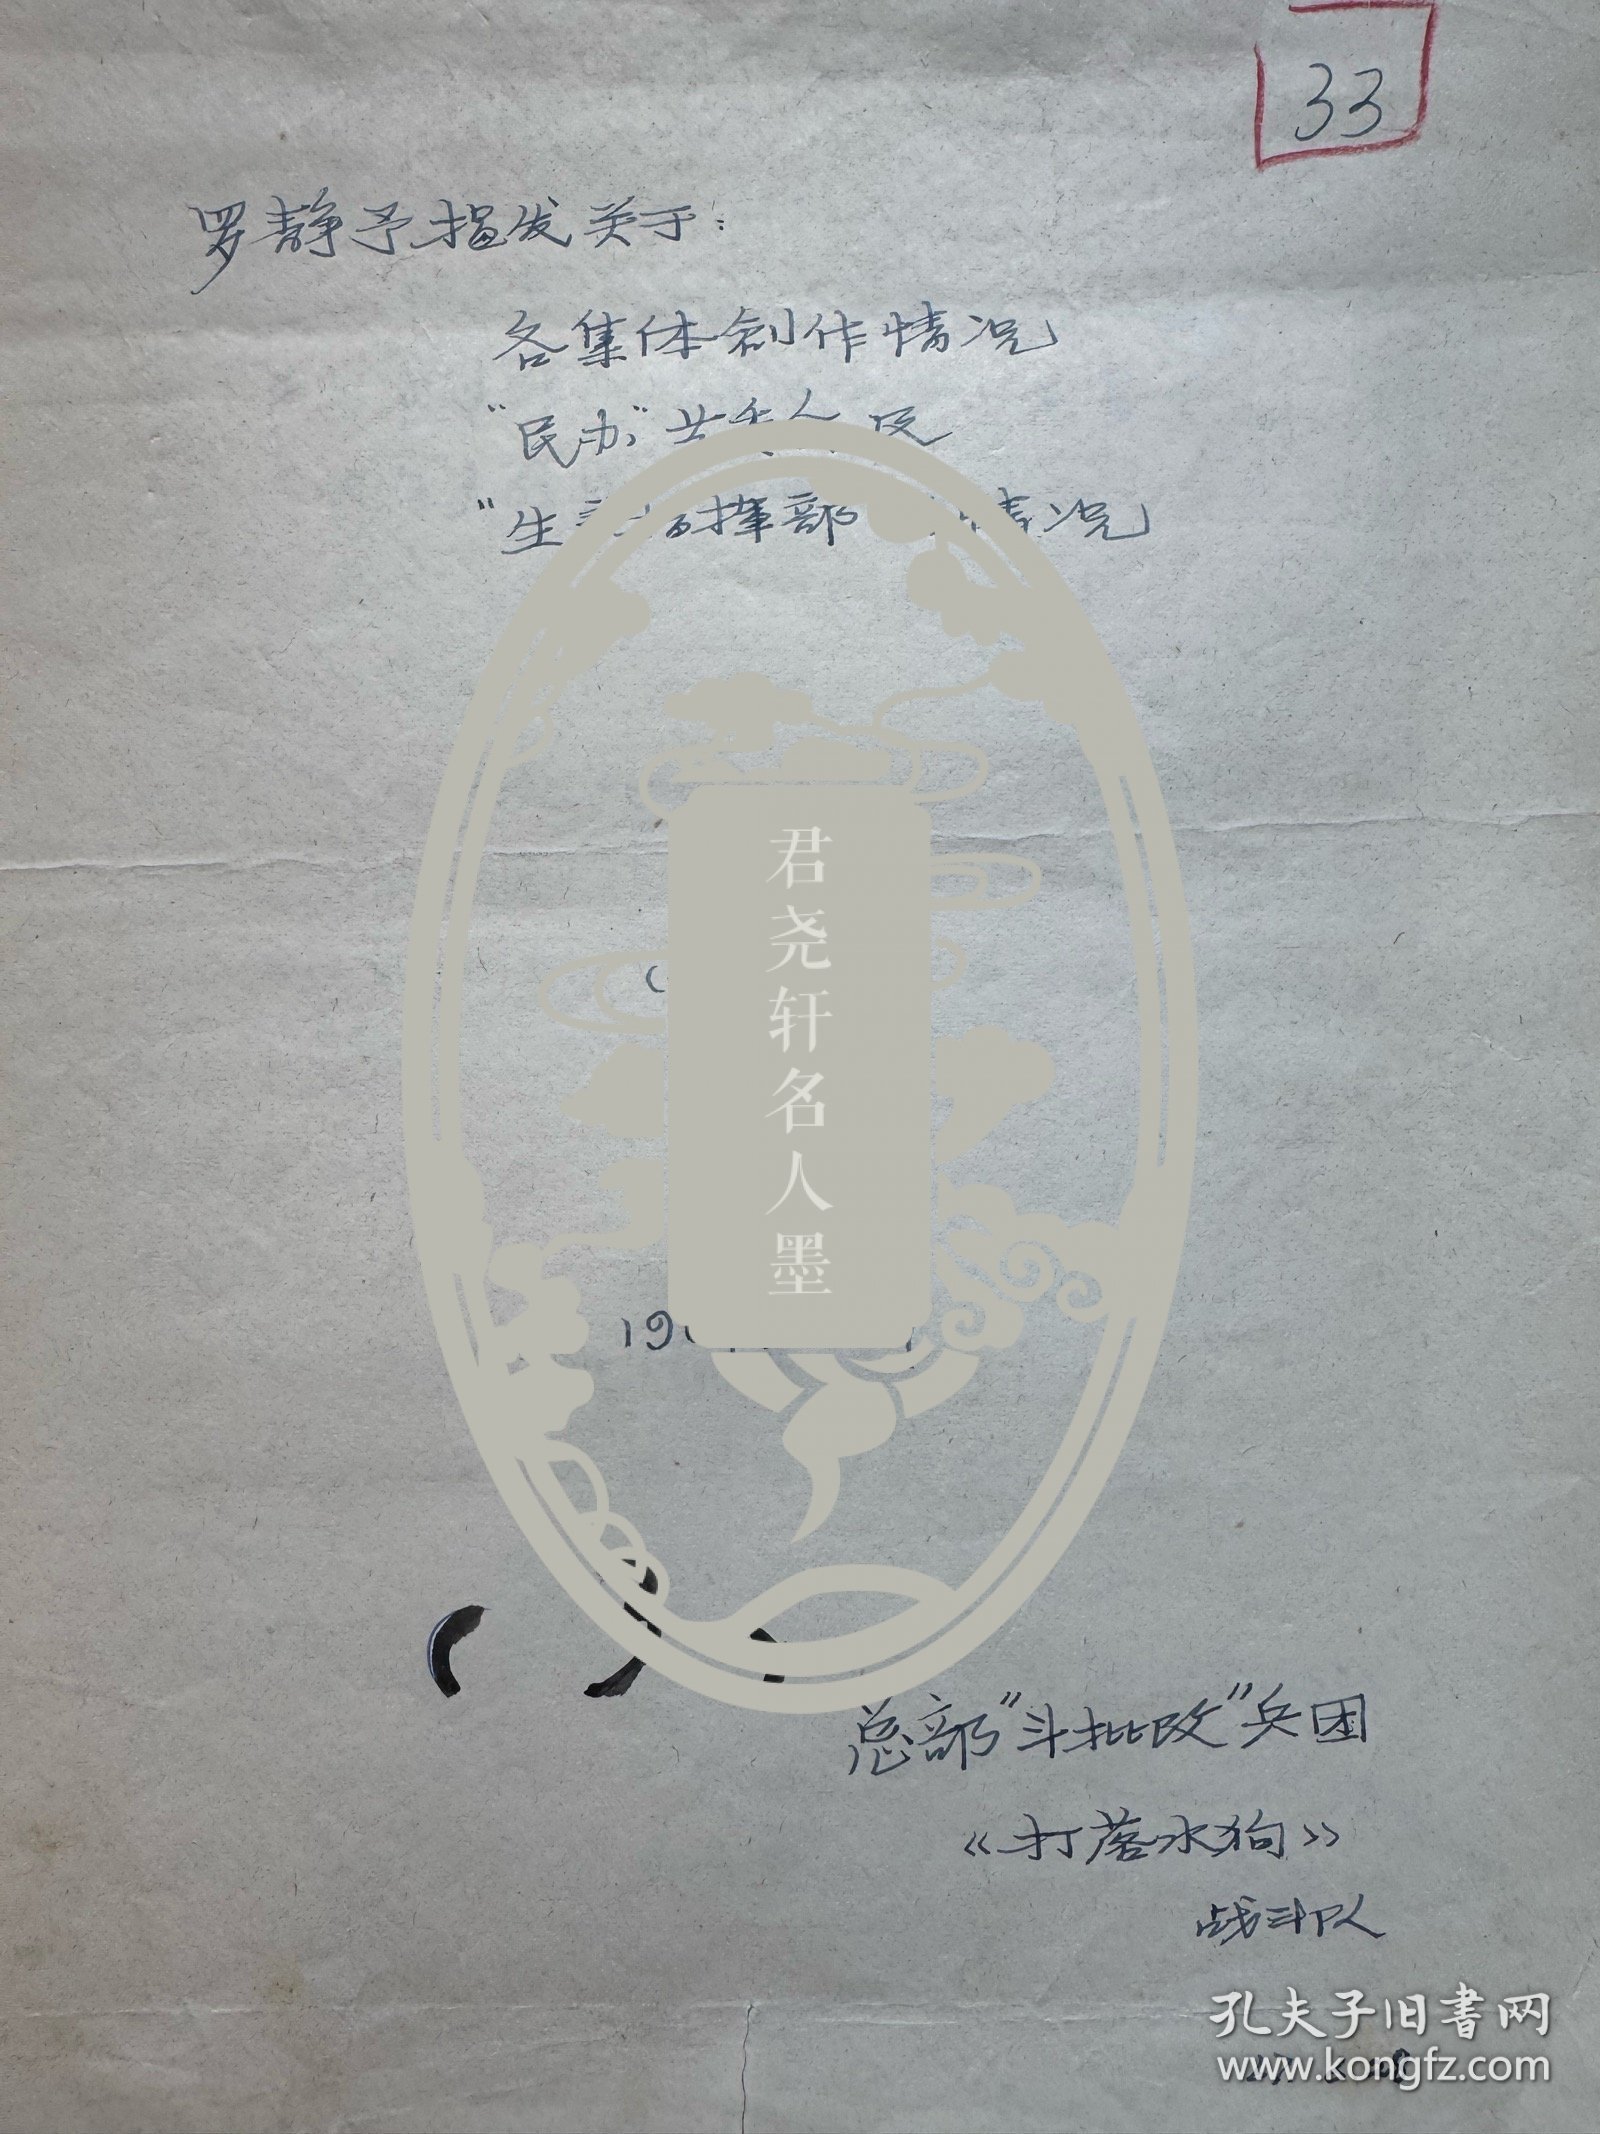 33
罗静予揭发关于：
各集体创作情况
“民办”
“生 指挥部 情况
君尧轩名人墨
19
总部“斗批改”兵团
《打落水狗》
战斗队
孔夫子旧書网
www.kongfz.com